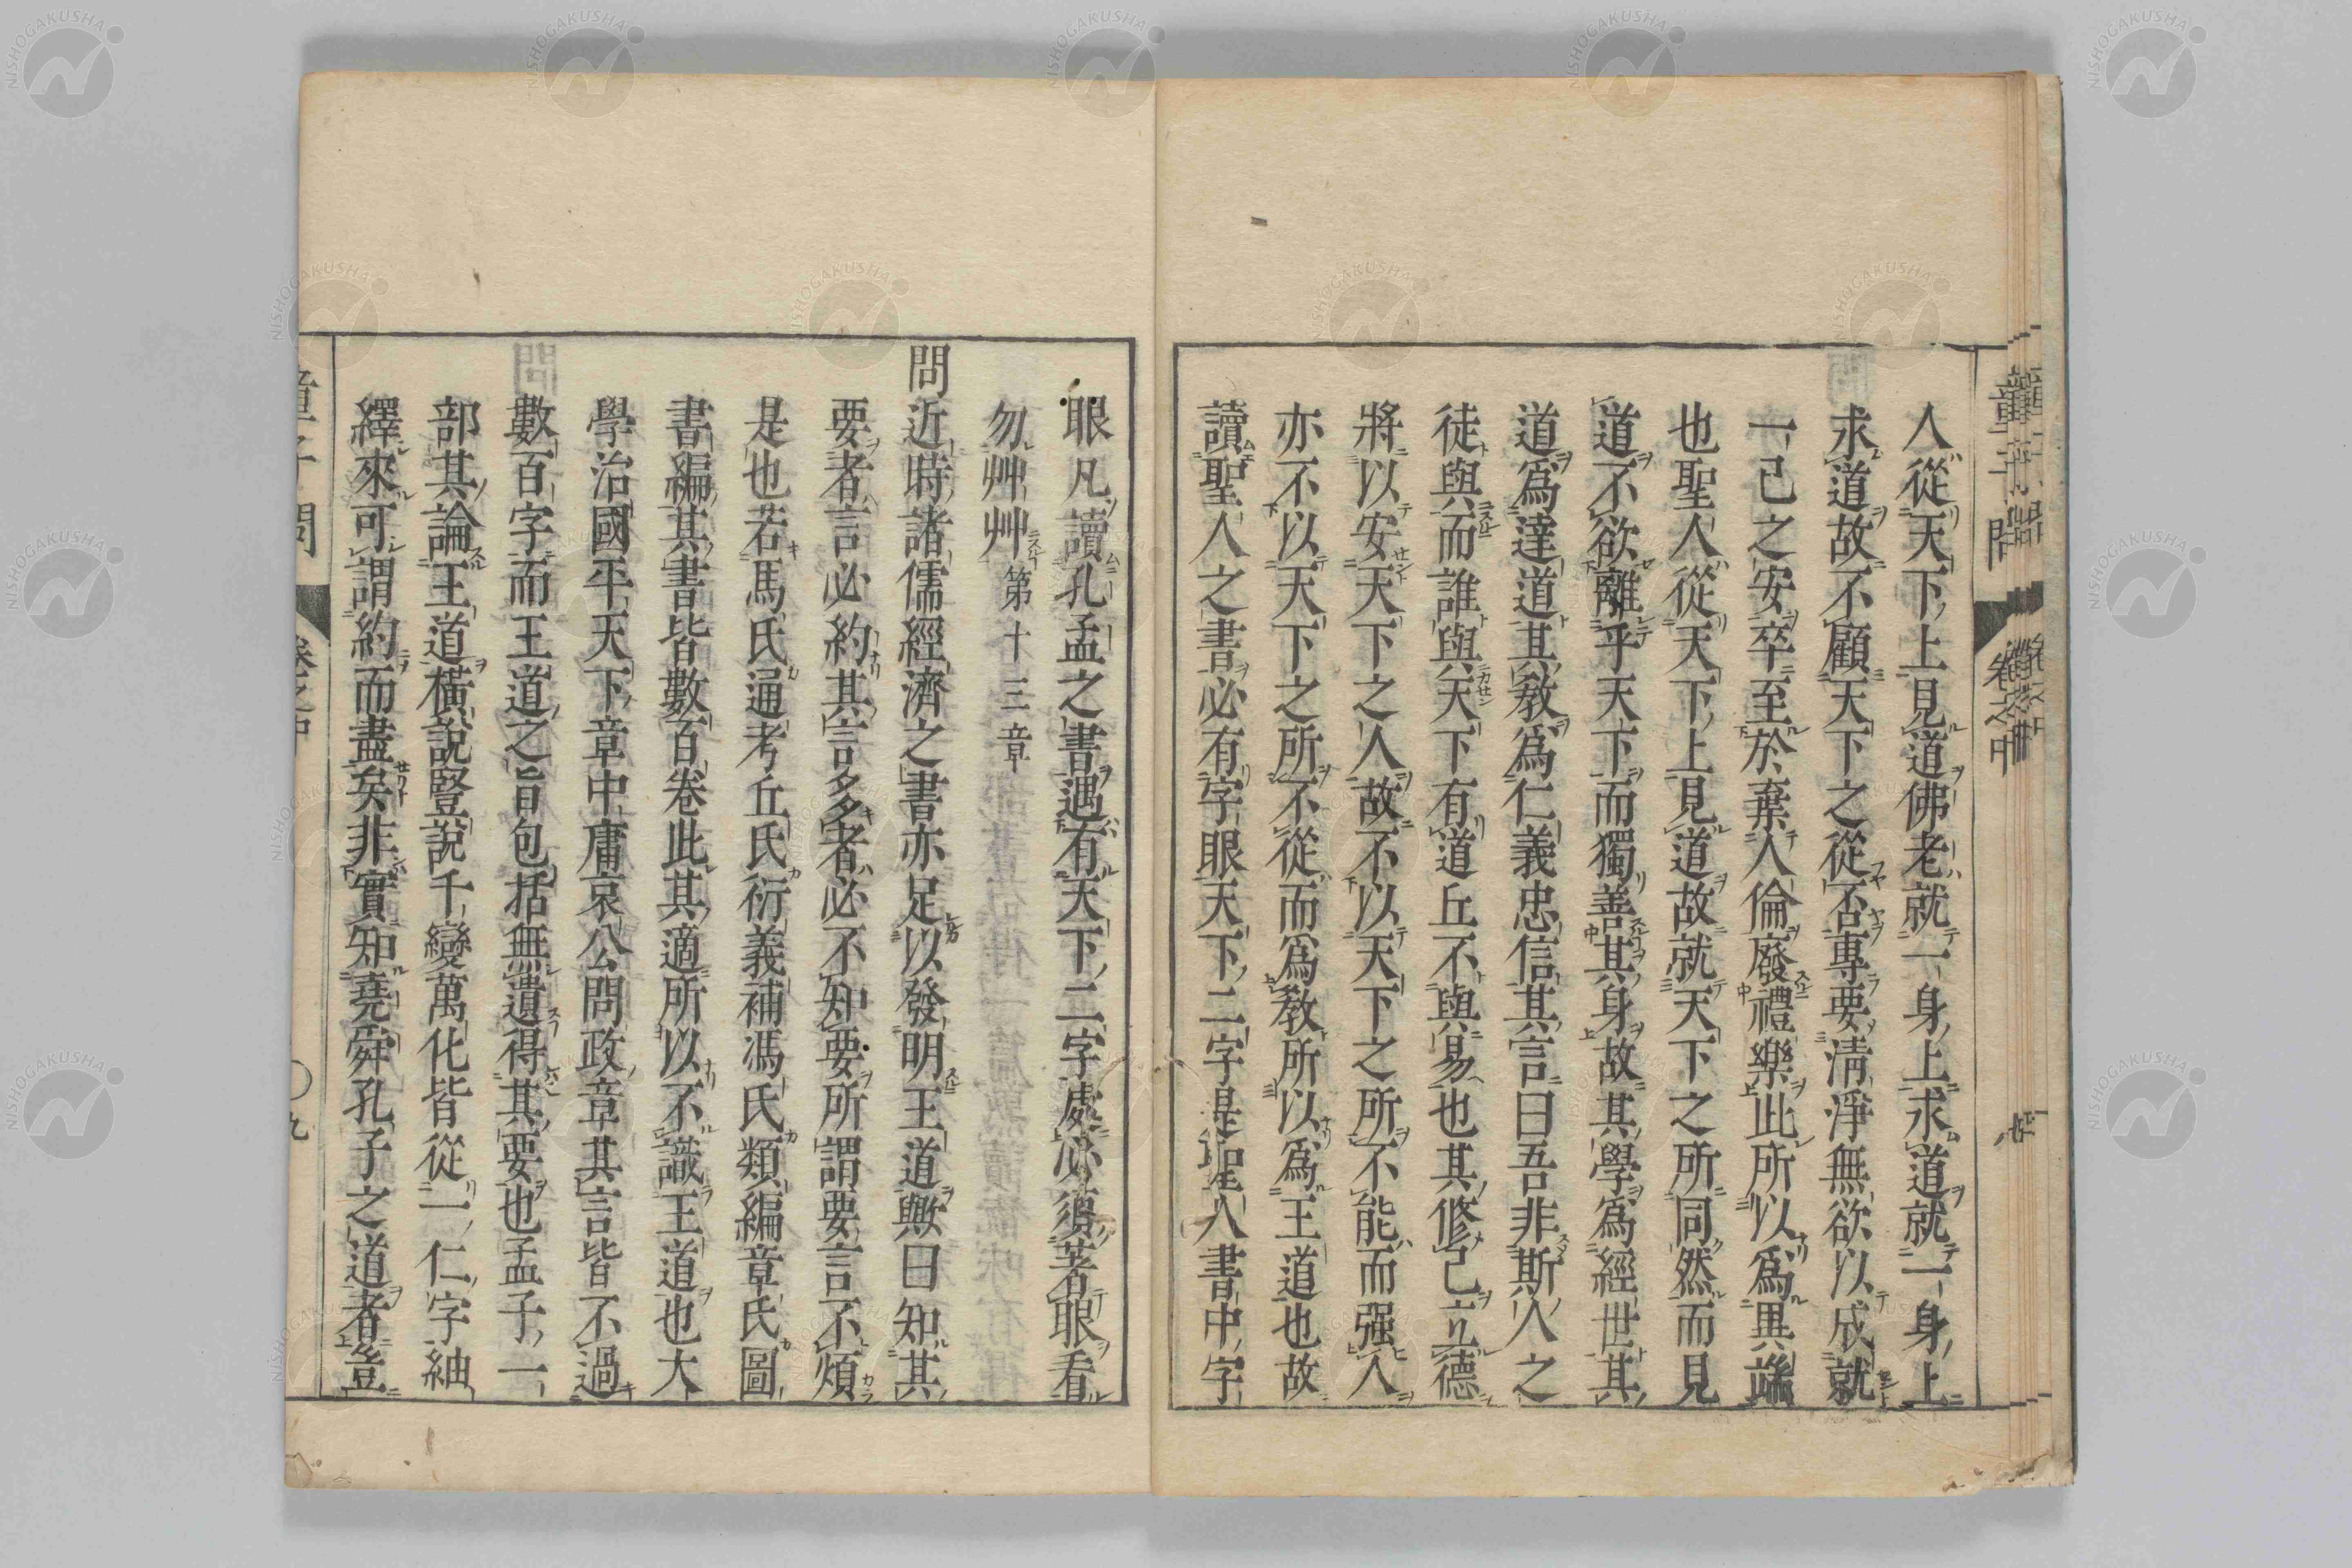 人從天下上見道佛老就一身上求道就一身上
求道故不顧天下之從否專要淸淨無欲以成就
一己之安卒至於棄人倫廢禮樂此所以爲異端
也聖人從天下上見道故就天下之所同然而見
道不欲離乎天下而獨善其身故其學爲經世其
道爲達道其敎爲仁義忠信其言曰吾非斯人之
徒與而誰與天下有道丘不與易也其修己立德
將以安天下之人故不以天下之所不能而强人
亦不以天下之所不從而爲敎所以爲王道也故
讀聖人之書必有字眼天下二字是聖人書中字
眼凡讀孔孟之書遇有天下二字處必須著眼看
勿艸艸第十三章
問近時諸儒經濟之書亦足以發明王道歟曰知其
要者言必約其言多者必不知要所謂要言不煩
是也若馬氏通考丘氏衍義補馮氏類編章氏圖
書編其書皆數百卷此其適所以不識王道也大
學治國平天下章中庸哀公問政章其言皆不過
數百字而王道之旨包括無遺得其要也孟子一
部其論王道橫說豎說千變萬化皆從一仁字紬
繹來可謂約而盡矣非實知堯舜孔子之道者豈
童子問 卷之中 〇九
NISHOGAKUSHA